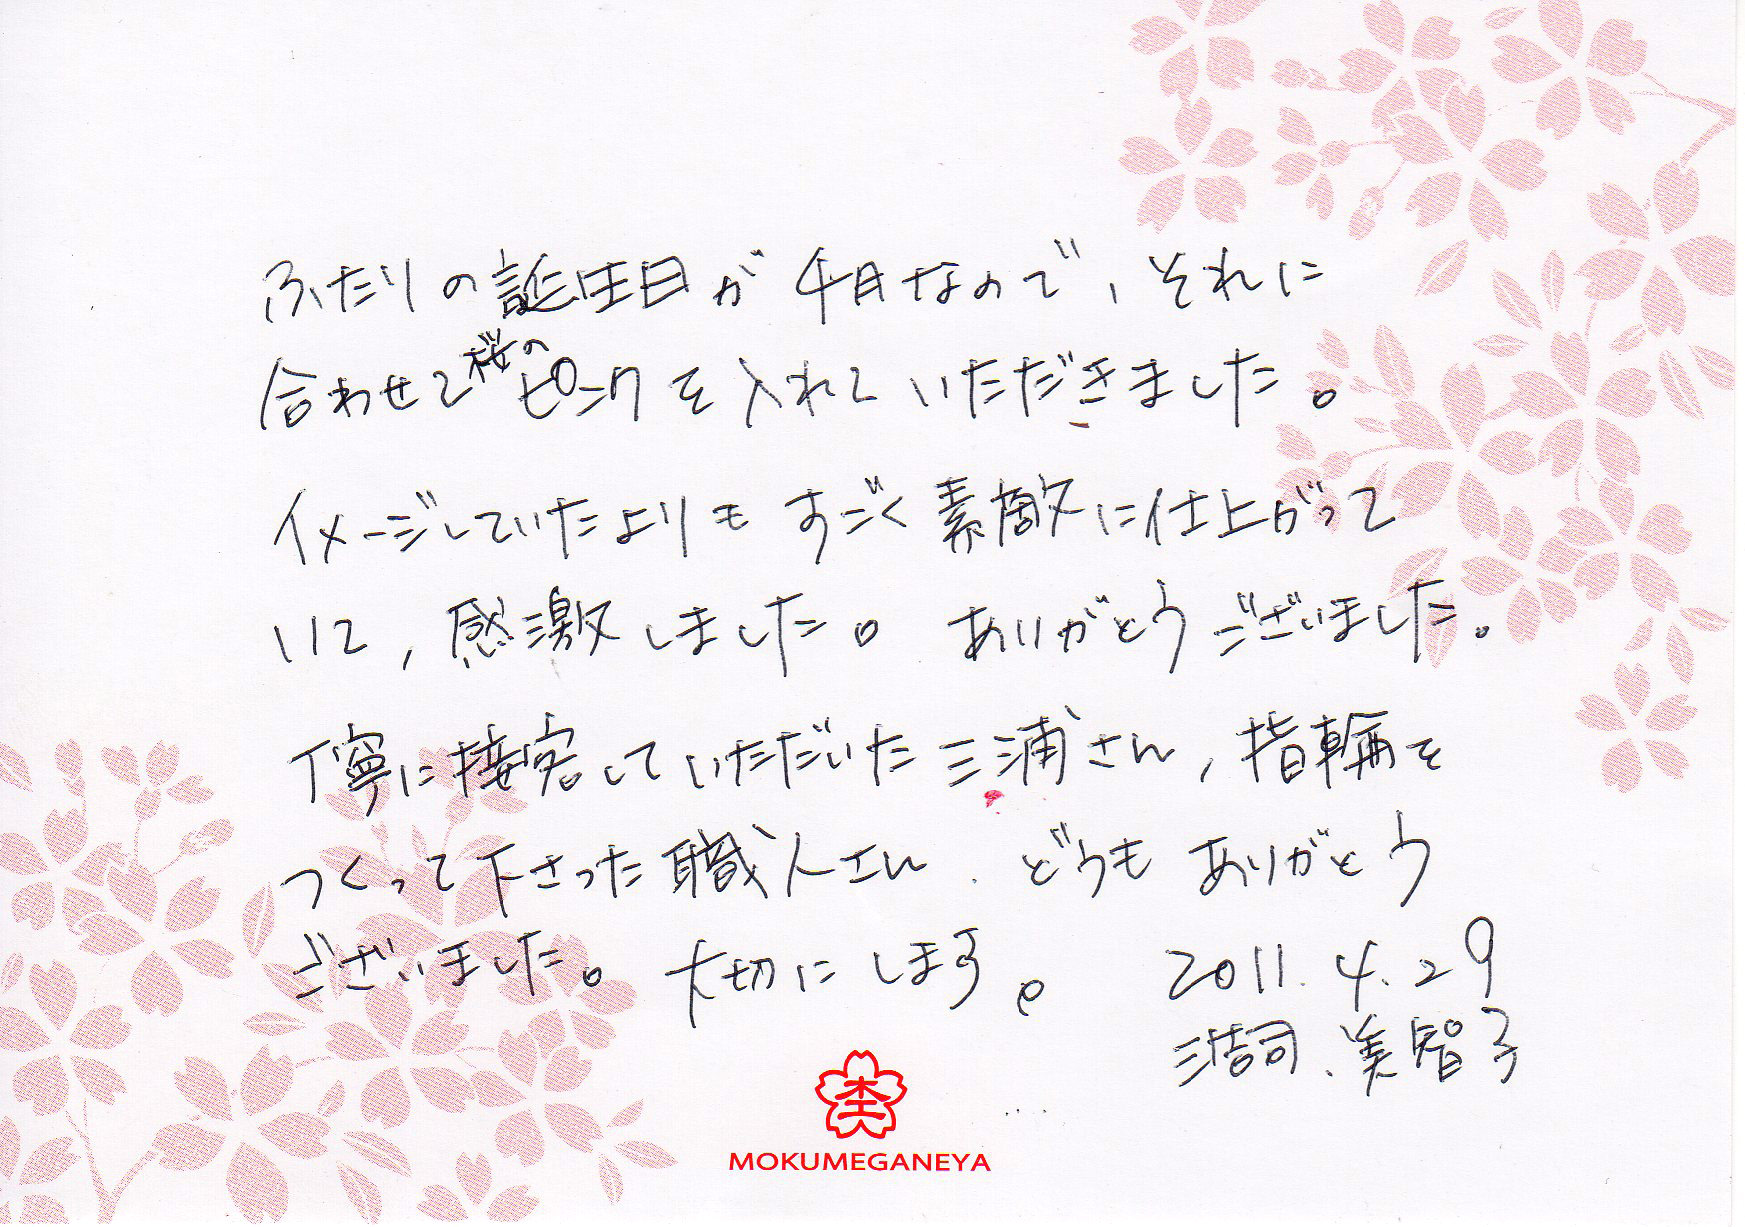 ふたりの誕生日が4月なので、それに
合わせて桜のピンクを入れていただきました。
イメージしていたよりもすごく素敵に仕上がって
いて、感激しました。ありがとうございました。
丁寧に接客していただいた三浦さん、指輪を
つくって下さった職人さん、どうもありがとう
ございました。大切にします。 2011.4.29
浩司、美智子
杢
MOKUMEGANEYA